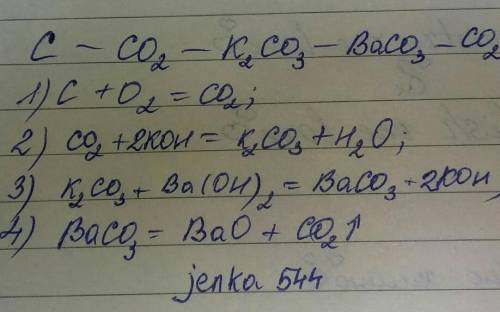 C – CO₂ – K₂CO₃ – BaCO₃ – CO₂
1) C + O₂ = CO₂;
2) CO₂ + 2KOH = K₂CO₃ + H₂O;
3) K₂CO₃ + Ba(OH)₂ = BaCO₃ + 2KOH,
4) BaCO₃ = BaO + CO₂↑
jenka 544